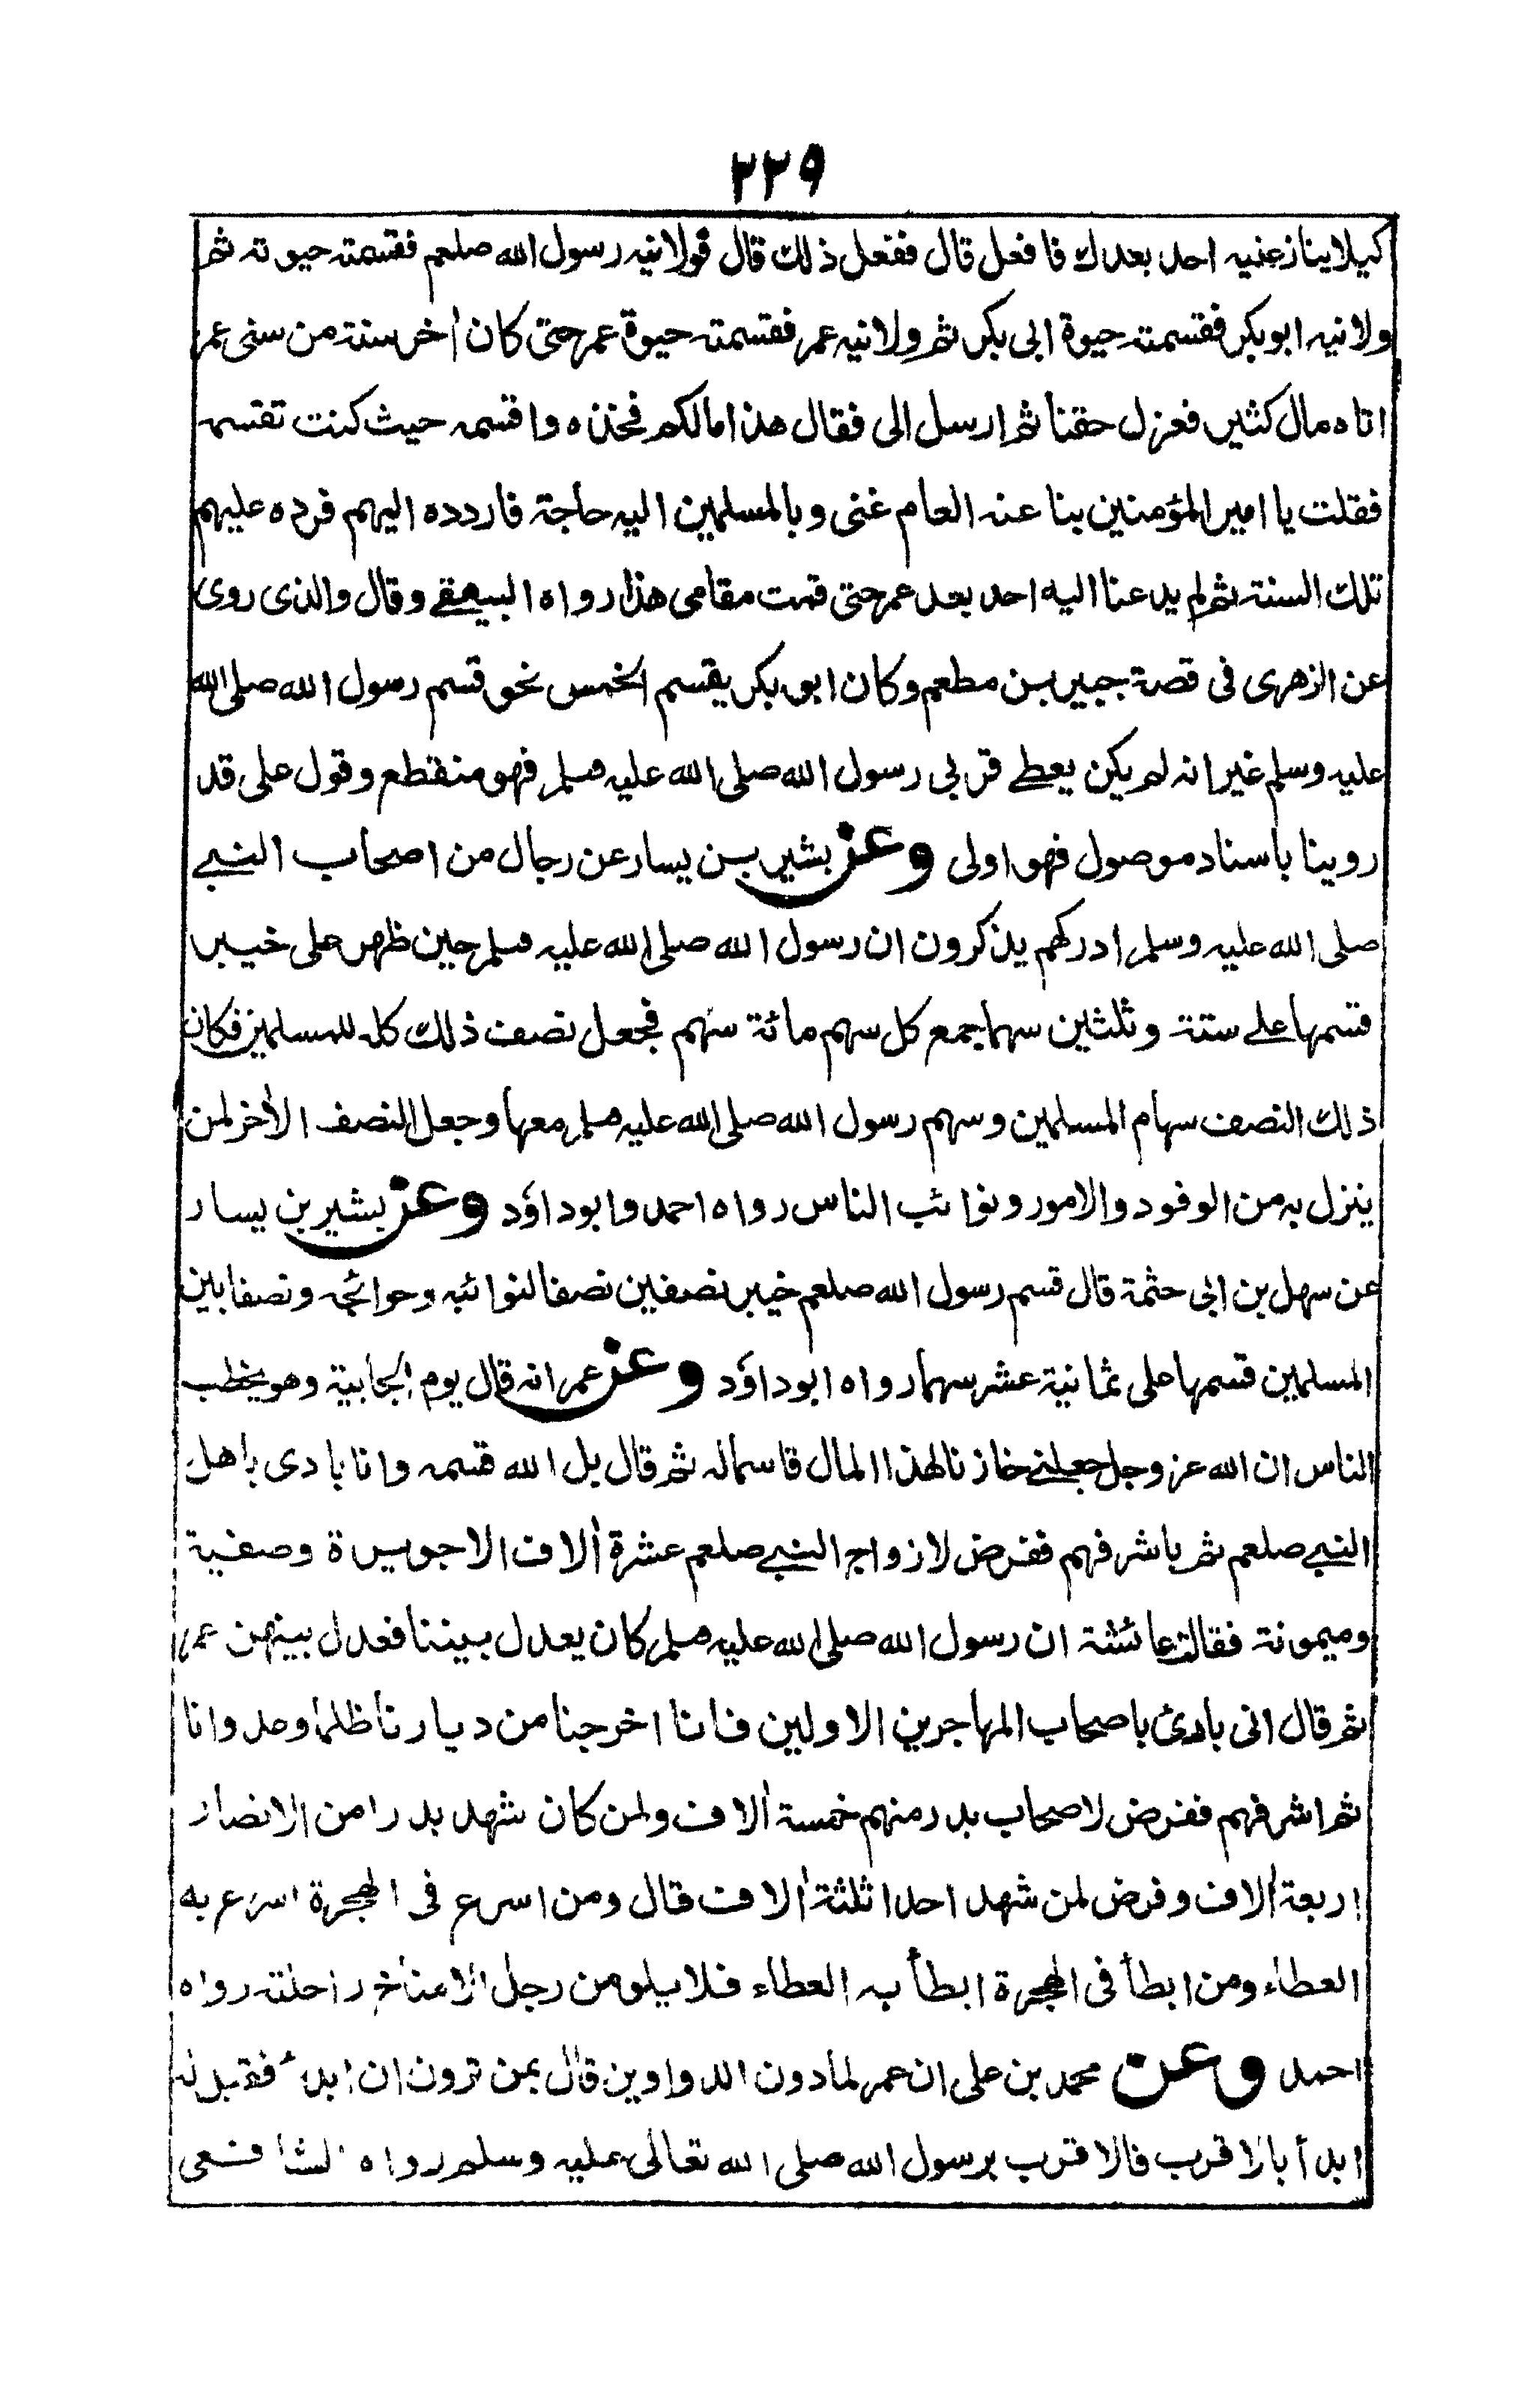 ٢٢٩
كيلا ينازعنيه احد بعدك فافعل قال ففعل ذلك قال فولانيه رسول الله صلعم فقسمته حيوته ثم
ولانيه ابوبكر فقسمته حيوة ابى بكر ثم ولانيه عمر فقسمته حيوة عمر حتى كان اٰخر سنة من سنى عمر
اتاه مال كثير فعزل حقنا ثم ارسل الى فقال هذا مالكم فخذه واقسمه حيث كنت تقسمه
فقلت يا امير المؤمنين بنا عنه العام غنى وبالمسلمين اليه حاجة فاردده اليهم فرده عليهم
تلك السنة ثم لم يدعنا اليه احد بعد عمر حتى قمت مقامى هذا رواه البيهقے وقال والذى روى
عن الزهرى فى قصة جبير بن مطعم وكان ابوبكر يقسم الخمس نحو قسم رسول الله صلى الله
عليه وسلم غير انه لم يكن يعطے قربى رسول الله صلى الله عليه وسلم فهو منقطع وقول على قد
روينا باسناد موصول فهو اولى وعن بشير بن يسار عن رجال من اصحاب النبے
صلى الله عليه وسلم ادركهم يذكرون ان رسول الله صلى الله عليه وسلم حين ظهر على خيبر
قسمها علے ستة وثلثين سهما جمع كل سهم مائة سهم فجعل نصف ذلك كله للمسلمين فكان
ذلك النصف سهام المسلمين وسهم رسول الله صلى الله عليه وسلم معها وجعل النصف الاٰخر لمن
ينزل به من الوفود والامور ونوائب الناس رواه احمد وابوداوٗد وعن بشير بن يسار
عن سهل بن ابى حثمة قال قسم رسول الله صلعم خيبر نصفين نصفا لنوائبه وحوائجه ونصفا بين
المسلمين قسمها على ثمانية عشر سهما رواه ابوداوٗد وعن عمر انه قال يوم الجابية وهو يخطب
الناس ان الله عز وجل جعلنے خازنا لهذا المال قاسما له ثم قال بل الله قسمه وانا بادى باهل
النبے صلعم ثم باشرفهم ففرض لازواج النبے صلعم عشرة اٰلاف الا جويرة وصفية
وميمونة فقالت عائشة ان رسول الله صلى الله عليه وسلم كان يعدل بيننا فعدل بينهن عمر
ثم قال انى بادئ باصحاب المهاجرين الاولين فانا اخرجنا من ديارنا ظلما وعدوانا
ثم اشرفهم ففرض لاصحاب بدر منهم خمسة اٰلاف ولمن كان شهد بدرا من الانصار
اربعة اٰلاف وفرض لمن شهد احدا ثلثة اٰلاف قال ومن اسرع فى الهجرة اسرع به
العطاء ومن ابطأ فى الهجرة ابطأ به العطاء فلا يلومن رجل الا مناخ راحلته رواه
احمد وعن محمد بن على ان عمر لما دون الدواوين قال بمن ترون ان ابدء فقيل له
ابدأ بالاقرب فالاقرب برسول الله صلى الله تعالى عليه وسلم رواه الشافعى